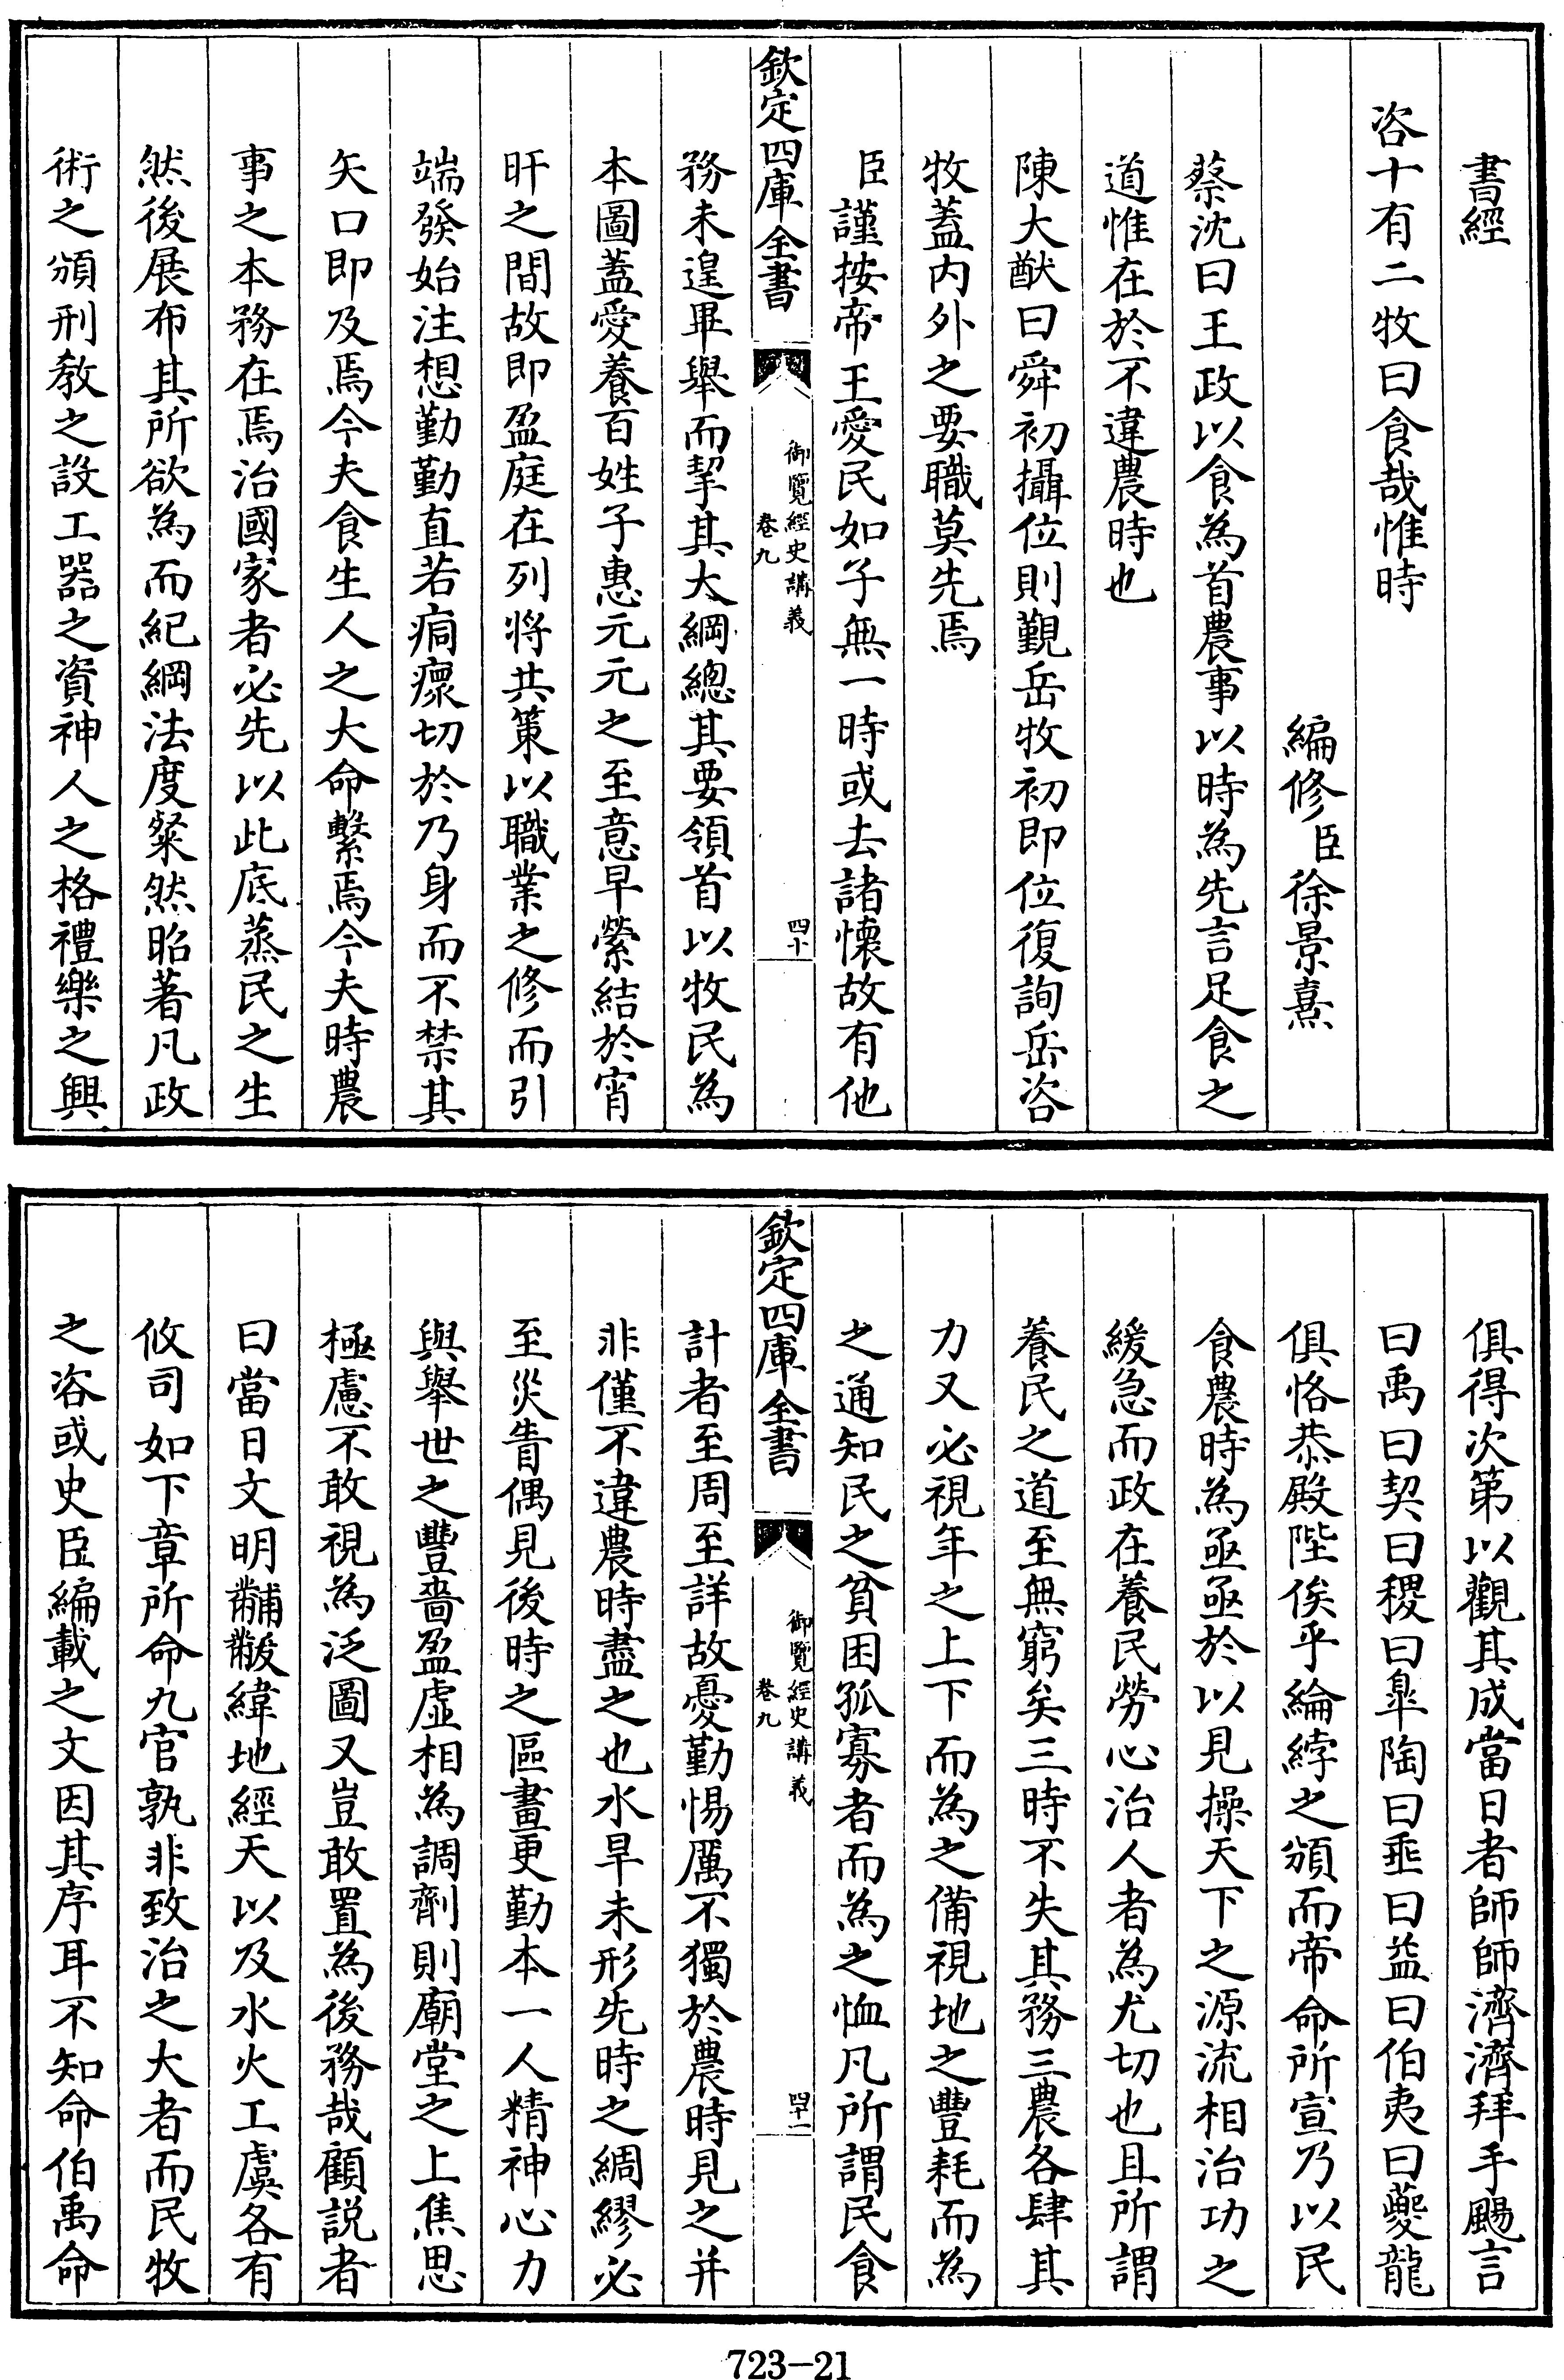 書經
咨十有二牧曰食哉惟時
編修臣徐景熹
蔡沈曰王政以食為首農事以時為先言足食之
道惟在於不違農時也
陳大猷曰舜初攝位則覲岳牧初即位復詢岳咨
牧蓋内外之要職莫先焉
臣謹按帝王愛民如子無一時或去諸懷故有他
欽定四庫全書
御覽經史講義
卷九
四十
務未遑畢舉而挈其大綱總其要領首以牧民為
本圖蓋愛養百姓子惠元元之至意早縈結於宵
旰之間故即盈庭在列將共策以職業之修而引
端發始注想勤勤直若痌瘝切於乃身而不禁其
矢口即及焉今夫食生人之大命繫焉今夫時農
事之本務在焉治國家者必先以此底蒸民之生
然後展布其所欲為而紀綱法度粲然昭著凡政
術之頒刑教之設工器之資神人之格禮樂之興
俱得次第以觀其成當日者師師濟濟拜手颺言
曰禹曰契曰稷曰臯陶曰垂曰益曰伯夷曰夔龍
俱恪恭殿陛俟乎綸綍之頒而帝命所宣乃以民
食農時為亟亟於以見操天下之源流相治功之
緩急而政在養民勞心治人者為尤切也且所謂
養民之道至無窮矣三時不失其務三農各肆其
力又必視年之上下而為之備視地之豐耗而為
之通知民之貧困孤寡者而為之恤凡所謂民食
欽定四庫全書
御覽經史講義
卷九
四十一
計者至周至詳故憂勤惕厲不獨於農時見之并
非僅不違農時盡之也水旱未形先時之綢繆必
至災眚偶見後時之區畫更勤本一人精神心力
與舉世之豐嗇盈虛相為調劑則廟堂之上焦思
極慮不敢視為泛圖又豈敢置為後務哉顧説者
曰當日文明黼黻緯地經天以及水火工虞各有
攸司如下章所命九官孰非致治之大者而民牧
之咨或史臣編載之文因其序耳不知命伯禹命
723-21